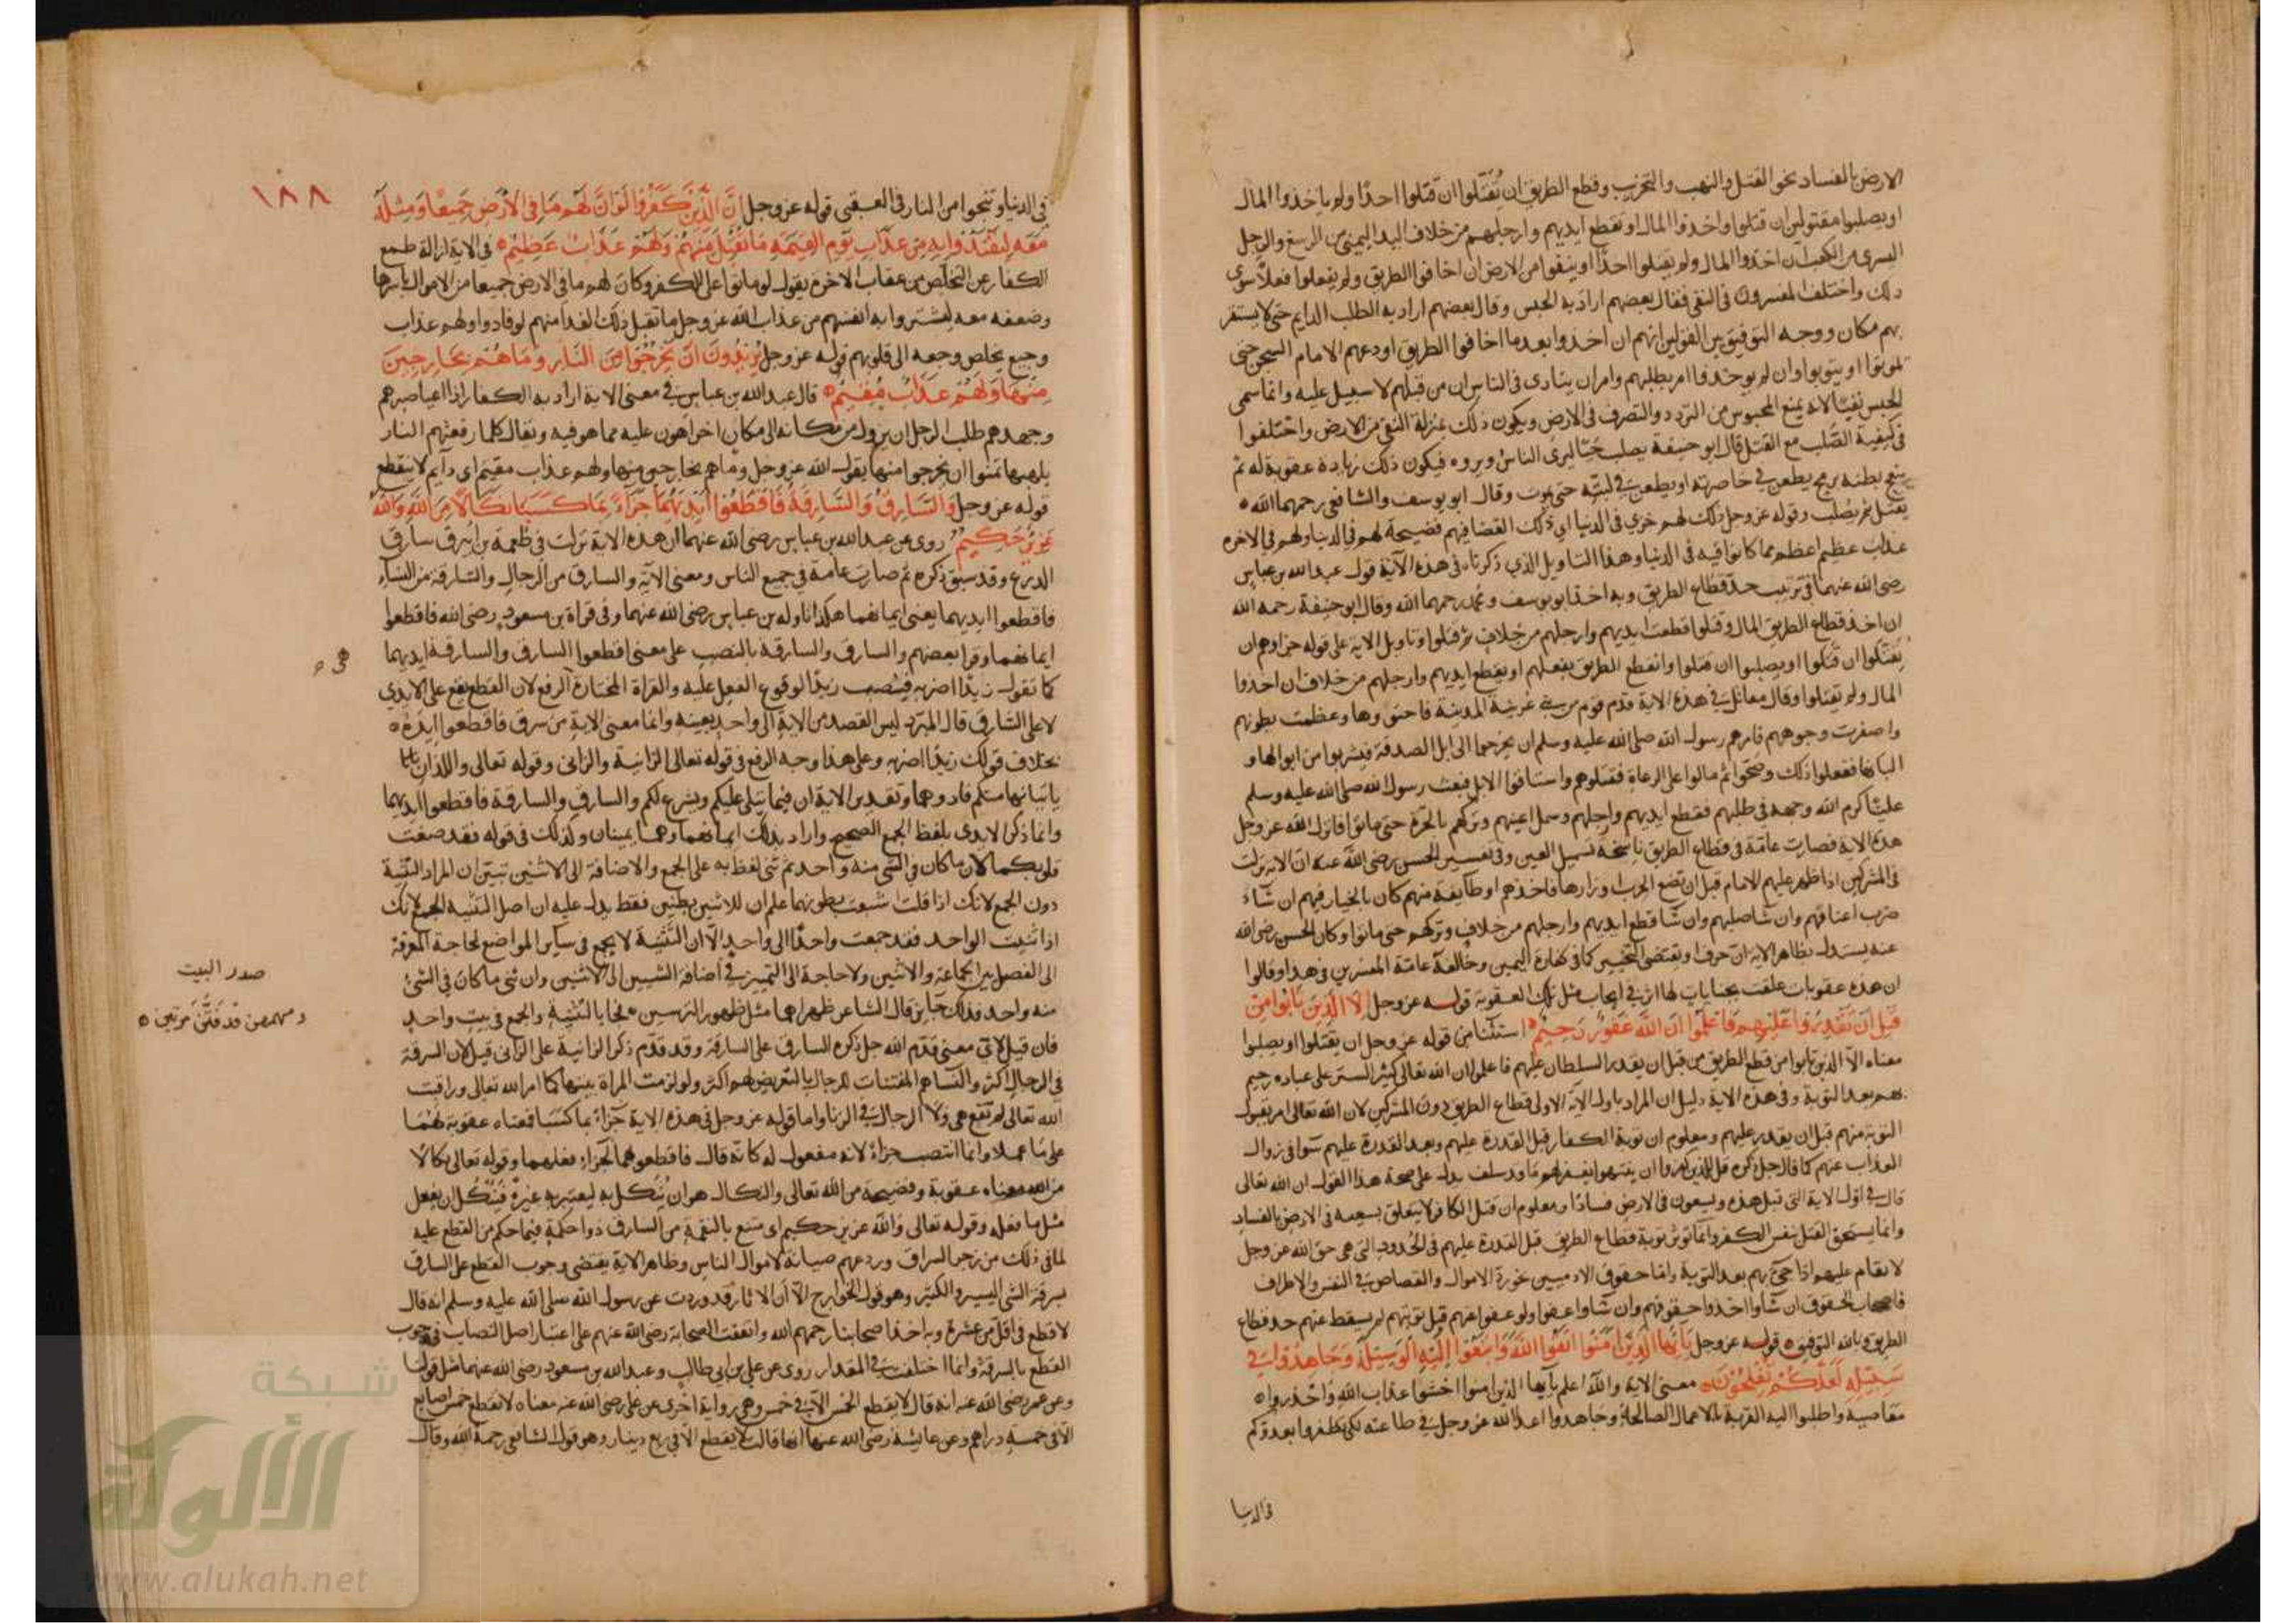 الارض بالفساد نحو القتل والنهب والتخريب وقطع الطريق ان يُقَتَّلوا ان قتلوا احدًا ولم ياخذوا المال
او يصلبوا مقتولين ان قتلوا واخذوا المال او تقطع ايديهم وارجلهم من خلاف اليد اليمنى من الرسغ والرجل
اليسرى من الكعب ان اخذوا المال ولم يقتلوا احدًا او ينفوا من الارض ان اخافوا الطريق ولم يفعلوا فعلًا سوى
ذلك واختلف المفسرون في النفي فقال بعضهم اراد به الحبس وقال بعضهم اراد به الطلب الدايم حتى لا يستقر
بهم مكان ووجه التوفيق بين القولين انهم ان اخذوا بعد ما اخافوا الطريق اودعهم الامام السجن حتى
يموتوا او يتوبوا وان لم يوخذوا امر بطلبهم وامر ان ينادى في الناس ان من قبلهم لا سبيل عليه وانما سمى
الحبس نفيًا لانه يمنع المحبوس من التردد والتصرف في الارض ويكون ذلك بمنزلة النفي من الارض واختلفوا
في كيفية الصُلب مع القتل قال ابو حنيفة يصلب حيًّا ليرى الناس ويروه فيكون ذلك زيادة عقوبة له ثم
يبعج بطنه برمح يطعن في خاصرته او يطعن في لبته حتى يموت وقال ابو يوسف والشافعي رحمهما الله ه
يقتل ثم يصلب وقوله عز وجل ذلك لهم خزي في الدنيا اي ذلك القضا فيهم فضيحة لهم في الدنيا ولهم في الاخره
عذاب عظيم اعظم مما كانوا فيه في الدنيا وهذا التاويل الذي ذكرناه في هذه الآية قول عبد الله بن عباس
رضي الله عنهما في ترتيب حد قطاع الطريق وبه اخذ ابو يوسف ومحمد رحمهما الله وقال ابو حنيفة رحمه الله
ان اخذ قطاع الطريق المال وقتلوا قطعت ايديهم وارجلهم من خلاف ثم قتلوا وتاويل الاية على قوله جزاوهم ان
يُقَتَّلُوا ان قَتَلوا او يصلبوا ان قتلوا وانقطع الطريق بفعلهم او يقطع ايديهم وارجلهم من خلاف ان اخذوا
المال ولم يقتلوا وقال مقاتل في هذه الاية قدم قوم من بني عرينة المدينة فاجتووها وعظمت بطونهم
واصفرت وجوههم فامرهم رسول الله صلى الله عليه وسلم ان يخرجوا الى ابل الصدقة فيشربوا من ابوالها و
البانها ففعلوا ذلك وصحوا ثم مالوا على الرعاة فقتلوهم واستاقوا الابل فبعث رسول الله صلى الله عليه وسلم
عليًا كرم الله وجهه في طلبهم فقطع ايديهم وارجلهم وسمل اعينهم وتركهم بالحرة حتى ماتوا فانزل الله عز وجل
هذه الاية فصارت عامّة في قطاع الطريق ناسخة لتسميل العين وفي تفسير الحسن رضي الله عنه ان الاية نزلت
في المشركين اذا ظهر عليهم الامام قبل ان تضع الحرب اوزارها فاخذهم او طايفة منهم كان بالخيار فيهم ان شاء
ضرب اعناقهم وان شا صلبهم وان شا قطع ايديهم وارجلهم من خلاف وتركهم حتى ماتوا وكان الحسن رضي الله
عنه يستدل بظاهر الاية ان حرف او يقتضى التخيير كما في كفارة اليمين وخالفه عامة المفسرين في هذا وقالوا
ان هذه عقوبات علقت بجنايات لها اثر في ايجاب مثل تلك العقوبة قوله عز وجل الا الذين تابوا من
قبل ان تقدروا عليهم فاعلموا ان الله غفور رحيم ه استثنا من قوله عز وجل ان يقتلوا او يصلبوا
معناه الا الذين تابوا من قطع الطريق من قبل ان يقدر السلطان عليهم فاعلموا ان الله تعالى كثير الستر على عباده رحيم
بهم بعد التوبة وفي هذه الاية دليل ان المراد باول الآية الاولى قطاع الطريق دون المشركين لان الله تعالى امر بقبول
التوبة منهم قبل ان يقدر عليهم ومعلوم ان توبة الكفار قبل القدرة عليهم وبعد القدرة عليهم سوا في زوال
العذاب عنهم كما قال جل ذكره قل للذين كفروا ان ينتهوا يغفر لهم ما قد سلف يدل على صحة هذا القول ان الله تعالى
قال في اول الاية التي قبل هذه ويسعون في الارض فسادًا ومعلوم ان قتل الكافر لا يتعلق بسعيه في الارض بالفساد
وانما يستحق القتل بنفس الكفر وانما توثر توبة قطاع الطريق قبل القدرة عليهم في الحدود التي هي حق الله عز وجل
لا يقام عليهم اذا جيء بهم بعد التوبة واما حقوق الادميين نحو رد الاموال والقصاص في النفس والاطراف
فاصحاب الحقوق ان شاوا اخذوا حقوقهم وان شاوا عفوا ولو عفوا عنهم قبل توبتهم لم يسقط عنهم حد قطاع
الطريق وبالله التوفيق ه قوله عز وجل يا ايها الذين امنوا اتقوا الله وابتغوا اليه الوسيلة وجاهدوا في
سبيله لعلكم تفلحون ه معنى الاية والله اعلم يا ايها الذين امنوا اخشوا عذاب الله واحذروا ه
معاصيه واطلبوا اليه القربة بالاعمال الصالحة وجاهدوا اعدا الله عز وجل في طاعته لكي تظفروا بعدوكم
في الدنيا
١٨٨
في الدنيا وتنجوا من النار في العقبى قوله عز وجل ان الذين كفروا لو ان لهم ما في الارض جميعا ومثله
معه ليفتدوا به من عذاب يوم القيمة ما تقبل منهم ولهم عذاب عظيم ه في الاية ازالة طمع
الكفار عن التخلص من عقاب الاخرة يقول لو ماتوا على الكفر وكان لهم ما في الارض جميعا من الاموال باسرها
وضعفه معه ليشتروا به انفسهم من عذاب الله عز وجل ما تقبل ذلك الفدا منهم لو فادوا ولهم عذاب
وجيع يخلص وجعه الى قلوبهم قوله عز وجل يريدون ان يخرجوا من النار وما هم بخارجين
منها ولهم عذاب مقيم ه قال عبد الله بن عباس في معنى الاية اراد به الكفار اذا اعيا صبرهم
وجهدهم طلب الرجل ان يزول من مكانه الى مكان اخر اهون عليه مما هو فيه ويقال كلما رفعتهم النار
بلهبها تمنوا ان يخرجوا منها يقول الله عز وجل وما هم بخارجين منها ولهم عذاب مقيم اي دايم لا ينقطع
قوله عز وجل والسارق والسارقة فاقطعوا ايديهما جزاء بما كسبا نكالا من الله والله
عزيز حكيم روى عن عبد الله بن عباس رضي الله عنهما ان هذه الاية نزلت في طعمة بن ابيرق سارق
الدرع وقد سبق ذكره ثم صارت عامة في جميع الناس ومعنى الآية والسارق من الرجال والسارقة من النساء
فاقطعوا ايديهما يعنى ايمانهما هكذا تاوله بن عباس رضي الله عنهما وفي قراة بن مسعود رضي الله فاقطعوا
ايمانهما وقرا بعضهم والسارق والسارقة بالنصب على معنى اقطعوا السارق والسارقة ايديهما
كما تقول زيدًا اضربه فينصب زيدًا لوقوع الفعل عليه والقراة المختارة الرفع لان القطع يقع على الايدي
لا على السارق قال المبرد ليس القصد من الاية الى واحد بعينه وانما معنى الاية من سرق فاقطعوا ايده ه
بخلاف قولك زيدًا اضربه وعلى هذا وجه الرفع في قوله تعالى الزانية والزاني وقوله تعالى واللذان
ياتيانها منكم فاذوهما وتقدير الاية ان فيما يتلى عليكم ويشرع لكم والسارق والسارقة فاقطعوا ايديهما
وانما ذكر الايدي بلفظ الجمع الصحيح واراد بذلك ايمانهما وهما يمينان وكذلك في قوله فقد صغت
قلوبكما لان ما كان في الشي منه واحد ثم ثنى لفظ به على الجمع والاضافة الى الاثنين تبين ان المراد التثنية
دون الجمع لانك اذا قلت اشبعت بطونهما علم ان للاثنين بطنين فقط يدل عليه ان اصل التثنية الجمع لانك
اذا ثنيت الواحد فقد جمعت واحدًا الى واحد الا ان التثنية لا يجمع في ساير المواضع لحاجة المعرفة
الى الفصل بين الجماعة والاثنين ولا حاجة الى التمييز في اضافة الشيين الى الاثنين وان ثنى ما كان في الشئ
منه واحد فذلك جايز قال الشاعر ظهراهما مثل ظهور الترسين ه فجا بالتثنية والجمع في بيت واحد
صدر البيت
ومهمهين قذفين مرتين ه
فان قيل لاي معنى قدم الله جل ذكره السارق على السارقة وقد قدم ذكر الزانية على الزاني قيل لان السرقة
في الرجال اكثر والنساء هم المفتنات للرجال بالتعريض لهم اكثر ولو لزمت المراة بيتها كما امر الله تعالى وراقبت
الله تعالى لم تقع هي ولا الرجال في الزنا واما قوله عز وجل في هذه الاية جزاءً بما كسبا فمعناه عقوبة لهما
على ما عملا وانما انتصب جزاءً لانه مفعول له كانه قال فاقطعوهما لجزاء فعلهما وقوله تعالى نكالًا
من الله معناه عقوبة وفضيحة من الله تعالى والنكال هو ان يُنكل به ليعتبر به غيره فينكل ان يفعل
مثل ما فعله وقوله تعالى والله عزيز حكيم اي منيع بالنقمة من السارق ذوا حكمة فيما حكم من القطع عليه
لما في ذلك من زجر السراق وردعهم صيانة لاموال الناس وظاهر الاية يقتضى وجوب القطع على السارق
بسرقة الشي اليسير والكثير وهو قول الخوارج الا ان الاثار قد وردت عن رسول الله صلى الله عليه وسلم انه قال
لا قطع في اقل من عشرة وبه اخذ اصحابنا رحمهم الله واتفقت الصحابة رضي الله عنهم على اعتبار اصل النصاب في وجوب
القطع بالسرقة وانما اختلفت في المقدار روى عن علي بن ابي طالب وعبد الله بن مسعود رضي الله عنهما مثل قولنا
وعن عمر رضي الله عنه انه قال لا يقطع الخمس الا في خمس وهي رواية اخرى عن علي رضي الله عنه معناه لا يقطع خمس اصابع
الا في خمسة دراهم وعن عايشة رضي الله عنها انها قالت لا يقطع الا في ربع دينار وهو قول الشافعي رحمة الله وقال
شبكة
الألوكة
www.alukah.net